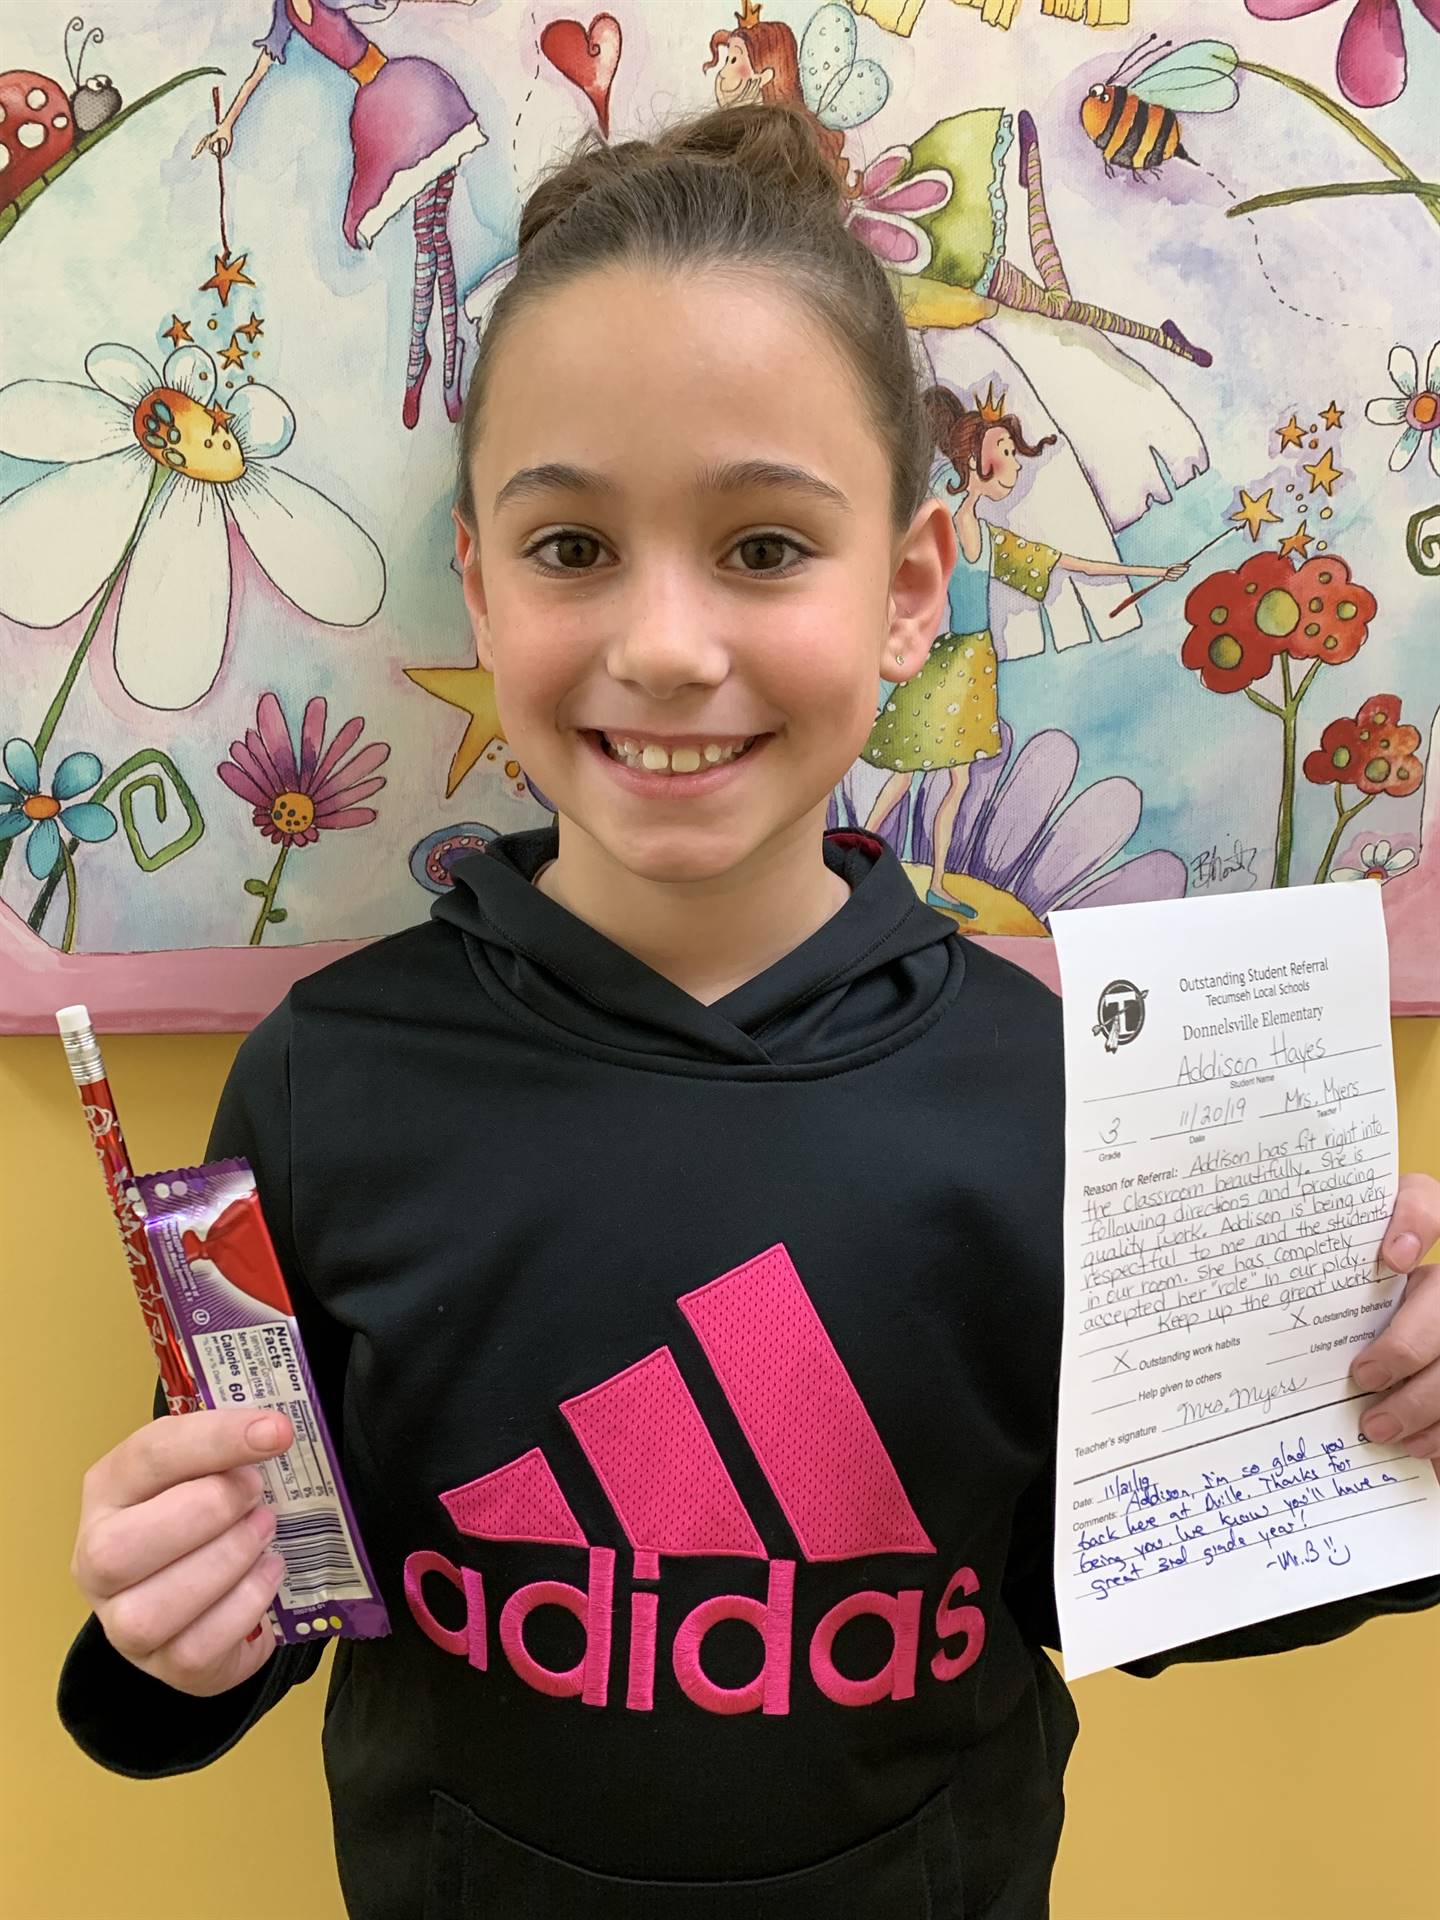 Outstanding Student Referral
Tecumseh Local Schools
T
Donnelsville Elementary
Addison Hayes
Student Name
3 11/20/19 Mrs. Myers
Grade Date Teacher
Reason for Referral: Addison has fit right into
the classroom beautifully. She is
following directions and producing
quality work. Addison is being very
respectful to me and the students
in our room. She has completely
accepted her "role" in our play.
Keep up the great work!
X Outstanding work habits X Outstanding behavior
Help given to others Using self control
Teacher's signature Mrs. Myers
Date: 11/21/19
Comments: Addison, I'm so glad you a
back here at Dville. Thanks for
being you. We know you'll have a
great 3rd grade year!
~Mr. B
Nutrition
Facts
1 serving per Container
Serv. size 1 Bar (15.6g)
Calories 60
per serving
Total Fat 0g
adidas